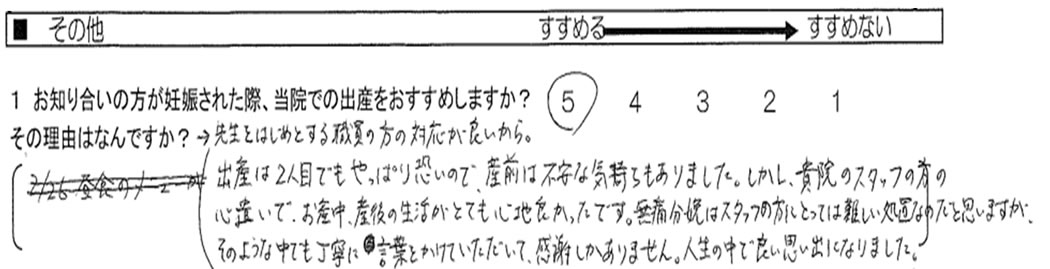 ■ その他 すすめる すすめない
1 お知り合いの方が妊娠された際、当院での出産をおすすめしますか? 5 4 3 2 1
その理由はなんですか?→先生をはじめとする職員の方の対応が良いから。
出産は2人目でもやっぱり恐いので、産前は不安な気持ちもありました。しかし、貴院のスタッフの方の
2/26 昼食のメニュー
心遣いで、お産中、産後の生活がとても心地良かったです。無痛分娩はスタッフの方にとっては難しい処置なのだと思いますが、
そのような中でも丁寧に言葉をかけていただいて、感謝しかありません。人生の中で良い思い出になりました。